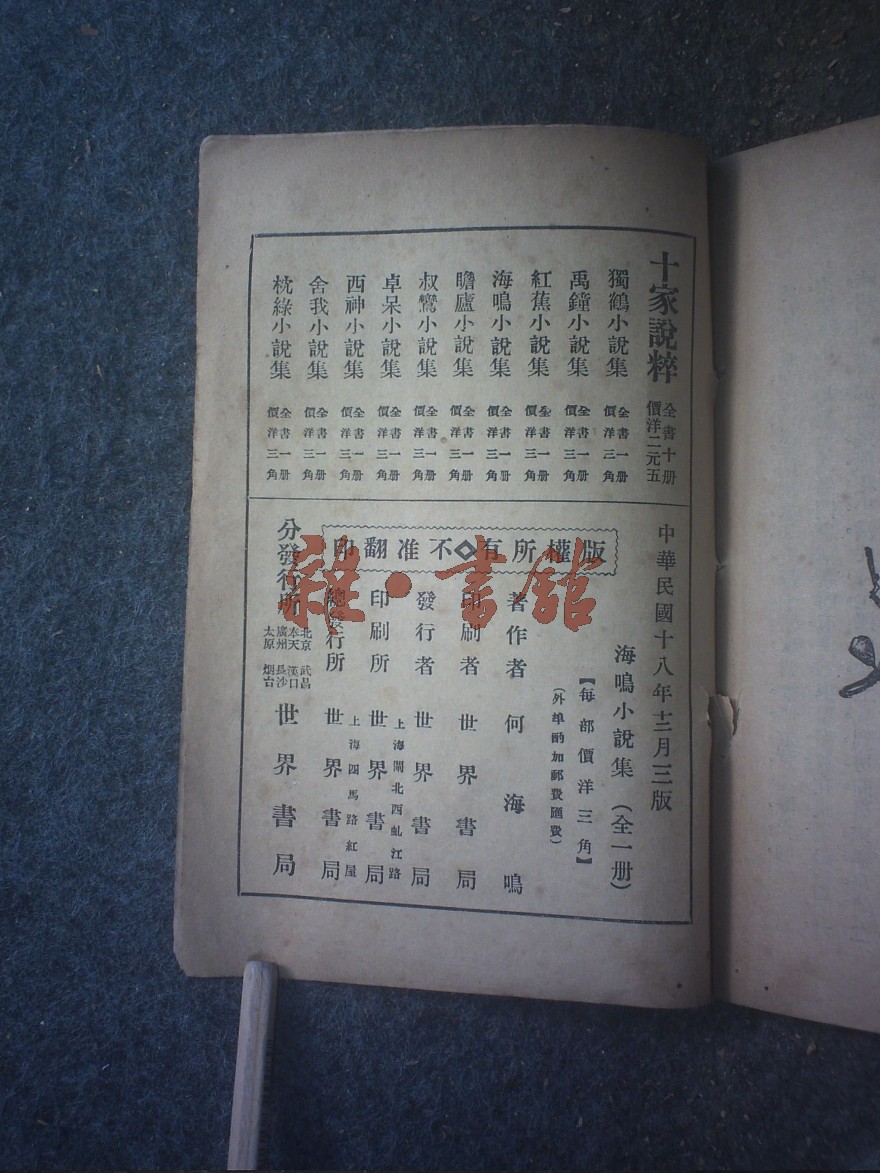 十家說粹
全書十册
價洋二元五
獨鶴小說集
全書一册
價洋三角
禹鐘小說集
全書一册
價洋三角
紅蕉小說集
全書一册
價洋三角
海鳴小說集
全書一册
價洋三角
瞻廬小說集
全書一册
價洋三角
叔鸞小說集
全書一册
價洋三角
卓呆小說集
全書一册
價洋三角
西神小說集
全書一册
價洋三角
舍我小說集
全書一册
價洋三角
枕綠小說集
全書一册
價洋三角
中華民國十八年十二月三版
海鳴小說集（全一册）
【每部價洋三角】
（外埠酌加郵費匯費）
版權所有◇不准翻印
著作者 何海鳴
印刷者 世界書局
發行者 世界書局
上海閘北西虬江路
印刷所 世界書局
上海四馬路紅屋
總發行所 世界書局
分發行所
北京 武昌
奉天 漢口
廣州 長沙
太原 烟台
世界書局
雜·書館